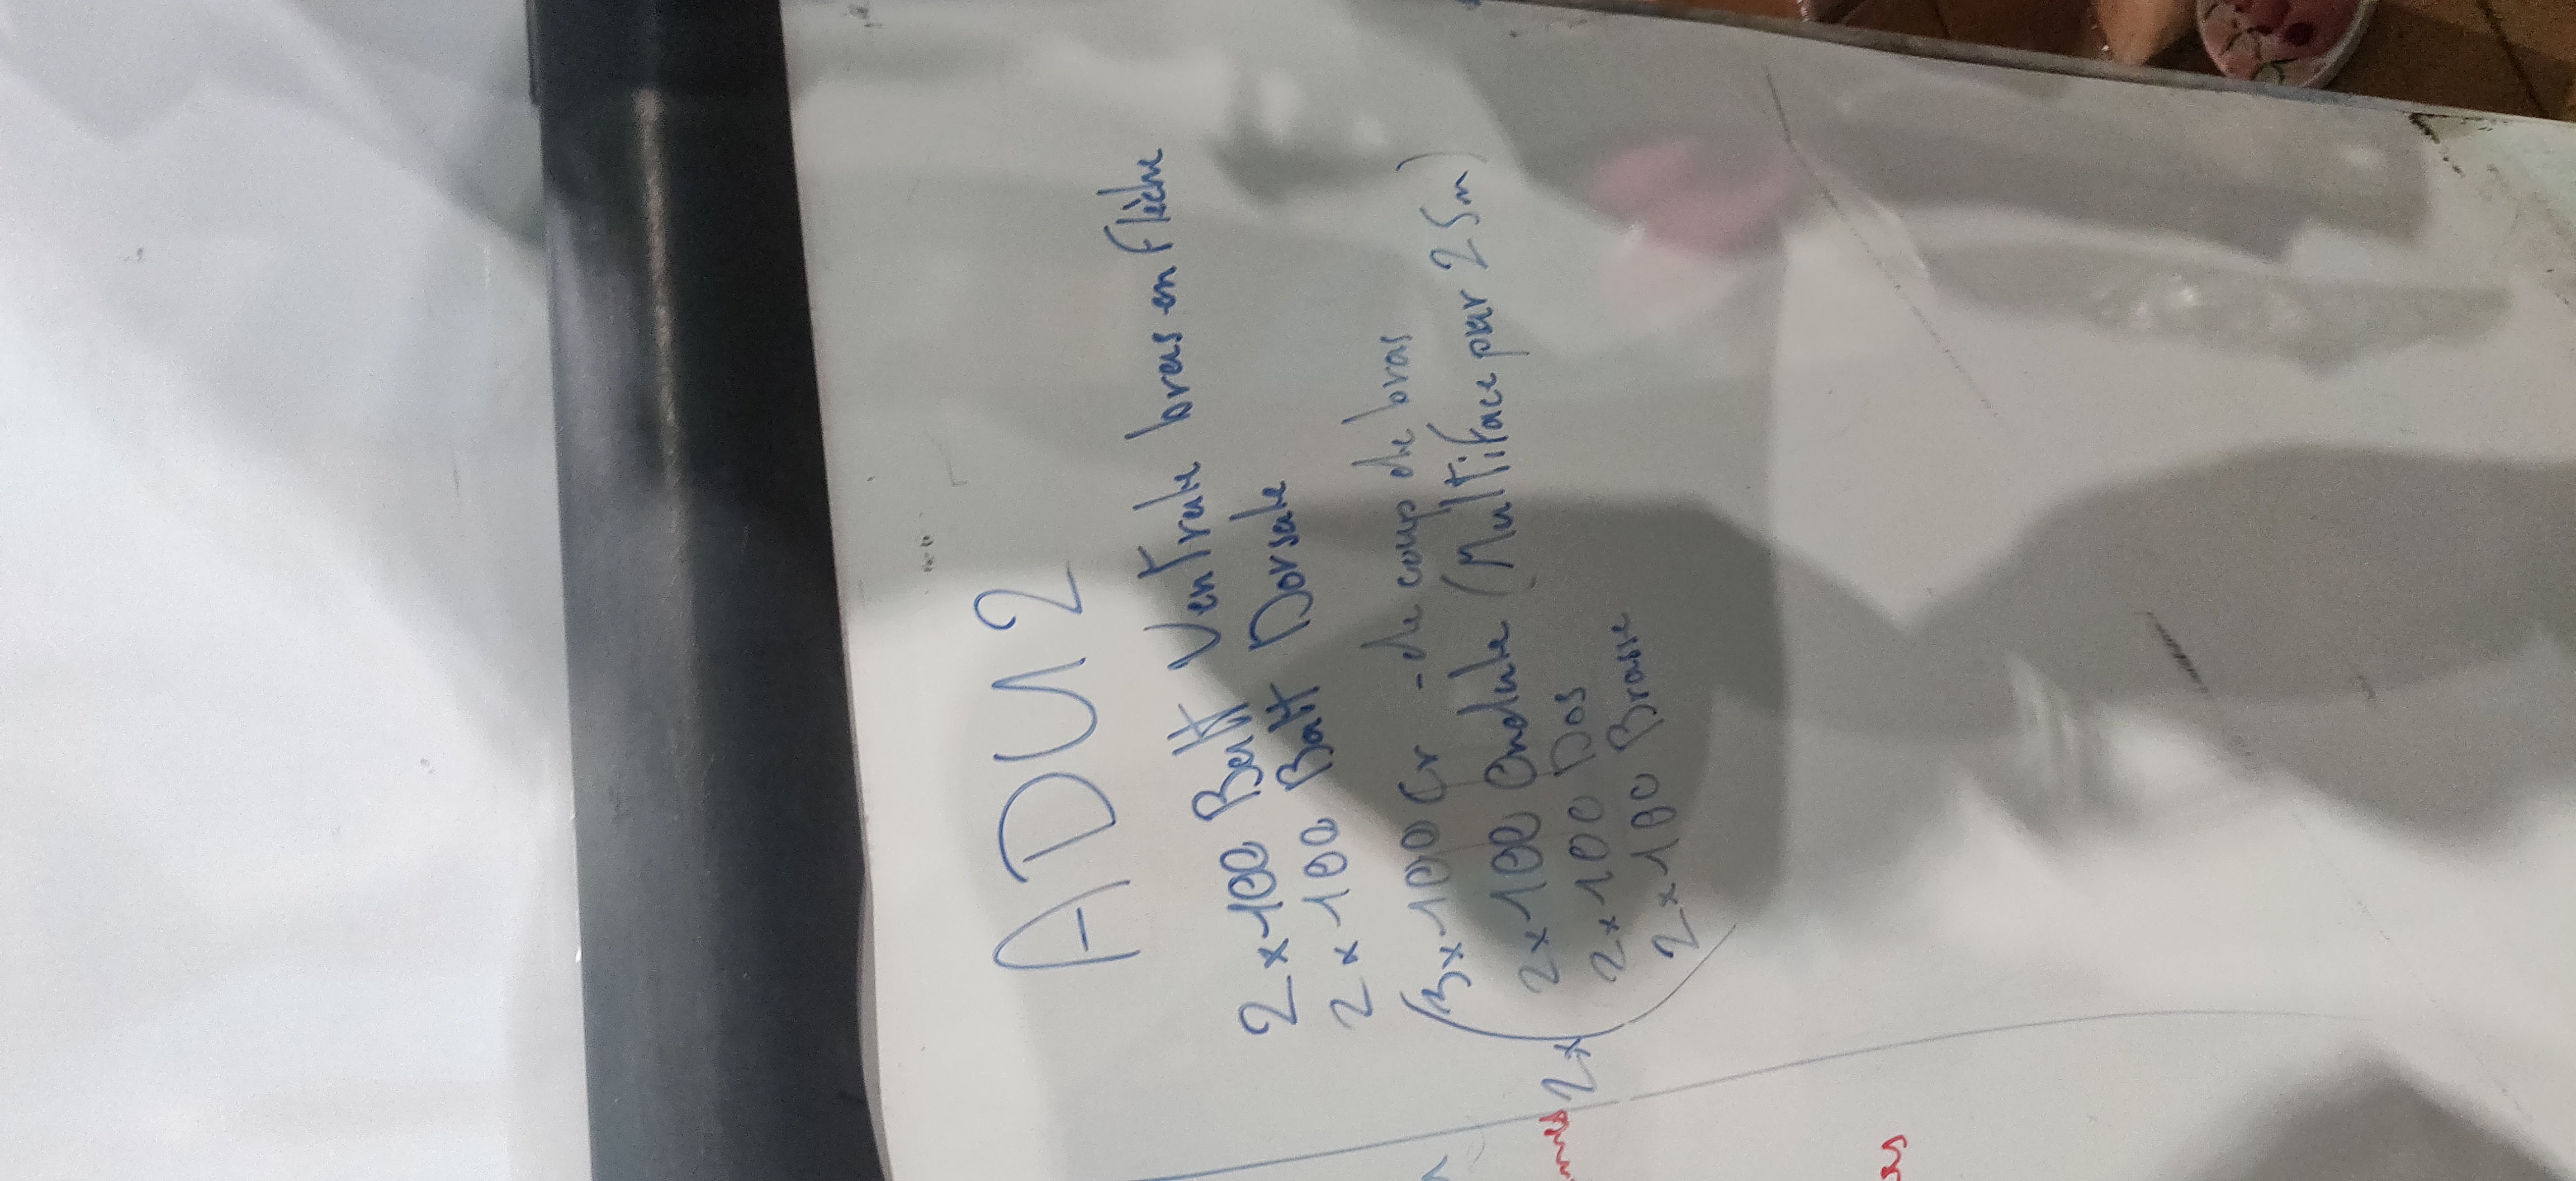 ADU 2
2x100 Batt Ventrale bras en flèche
2x100 Batt Dorsale
3x100 Cr - de coup de bras
2x100 Ondule (Multiface par 25m)
2x
2x100 Dos
2x100 Brasse